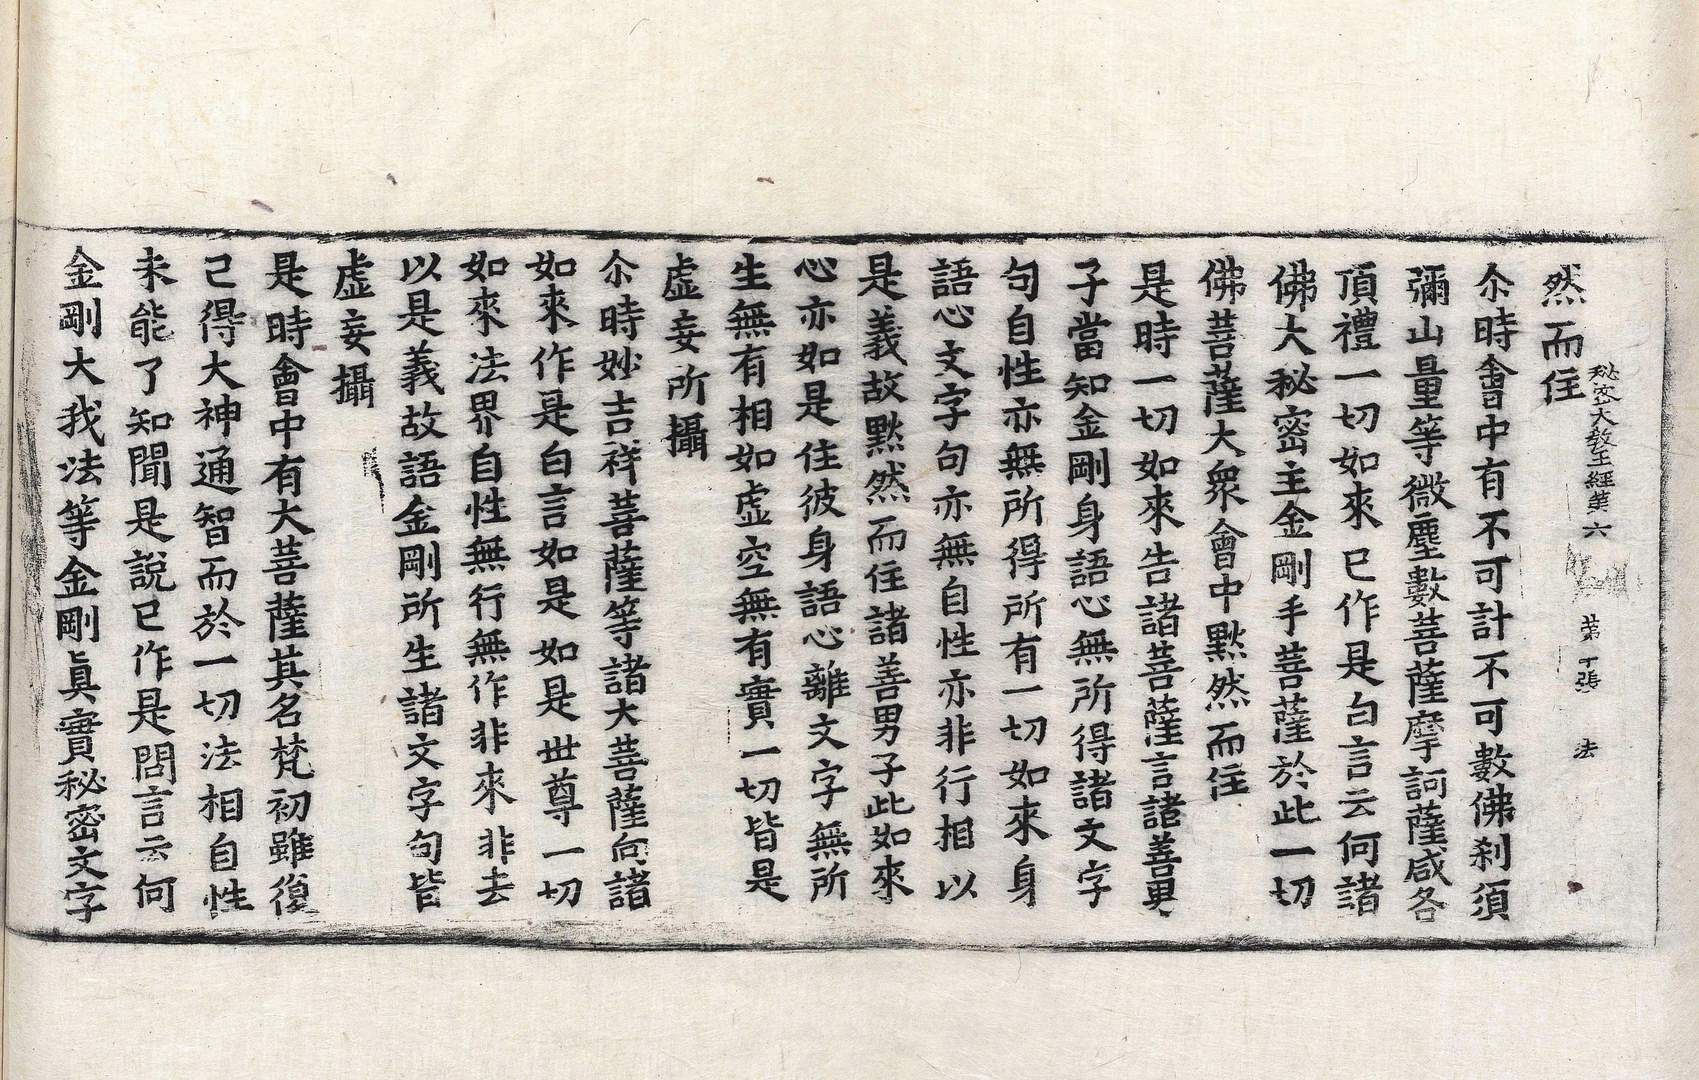 然而住
秘密大教王經第六 第十張 法
尒時會中有不可計不可數佛刹須
彌山量等微塵數菩薩摩訶薩咸各
頂禮一切如來已作是白言云何諸
佛大秘密主金剛手菩薩於此一切
佛菩薩大衆會中默然而住
是時一切如來告諸菩薩言諸善男
子當知金剛身語心無所得諸文字
句自性亦無所得所有一切如來身
語心文字句亦無自性亦非行相以
是義故默然而住諸善男子此如來
心亦如是住彼身語心離文字無所
生無有相如虛空無有實一切皆是
虛妄所攝
尒時妙吉祥菩薩等諸大菩薩向諸
如來作是白言如是如是世尊一切
如來法界自性無行無作非來非去
以是義故語金剛所生諸文字句皆
虛妄攝
是時會中有大菩薩其名梵初雖復
已得大神通智而於一切法相自性
未能了知聞是說已作是問言云何
金剛大我法等金剛眞實秘密文字